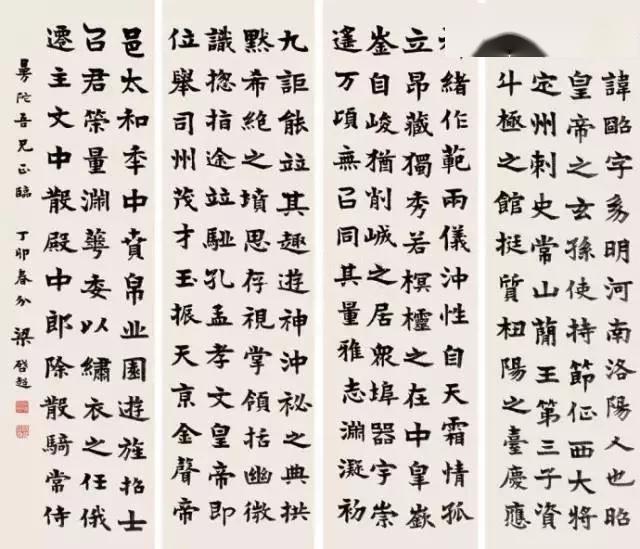 諱昭字幼明河南洛陽人也昭
皇帝之玄孫使持節征西大將
定州刺史常山蕳王第三子資
斗極之館挺質杻陽之臺慶應
緒作範兩儀沖性自天霜情孤
立昂藏獨秀若榠櫨之在中皐嶽
崟自峻猶削峸之居衆埠器宇崇
遙万頃無㠯同其量雅志淵凝初
九詎能竝其趣遊神沖祕之典拱
默希絕之墳思存視掌領括幽微
識揔指途竝駈孔孟孝文皇帝即
位舉司州茂才玉振天京金聲帝
邑太和秊中賁帛丠園遊旌招士
㠯君榮量淵蕐委以繡衣之任俄
遷主文中散殿中郎除散騎常侍
曼陀吾兄正臨 丁卯春分 梁啓超